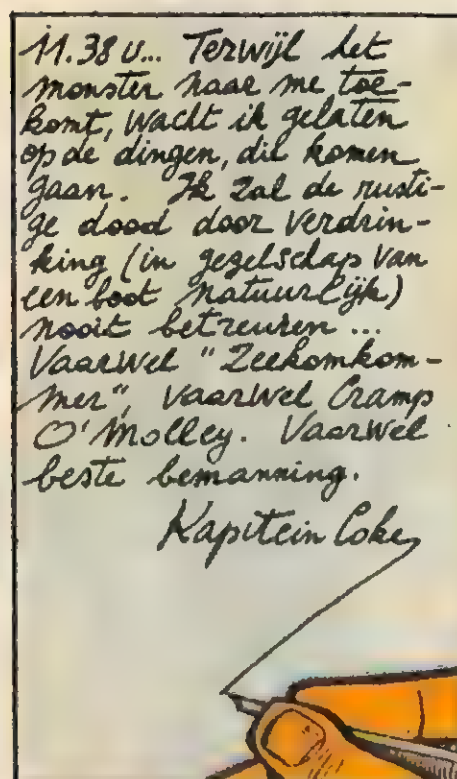 11.38 u... Terwijl het
monster naar me toe-
komt, wacht ik gelaten
op de dingen, die komen
gaan. Ik zal de rusti-
ge dood door verdrin-
king (in gezelschap van
een boot natuurlijk)
nooit betreuren ...
Vaarwel "Zeekomkom-
mer", vaarwel Cramp
O'Molley. Vaarwel
beste bemanning.
Kapitein Coke